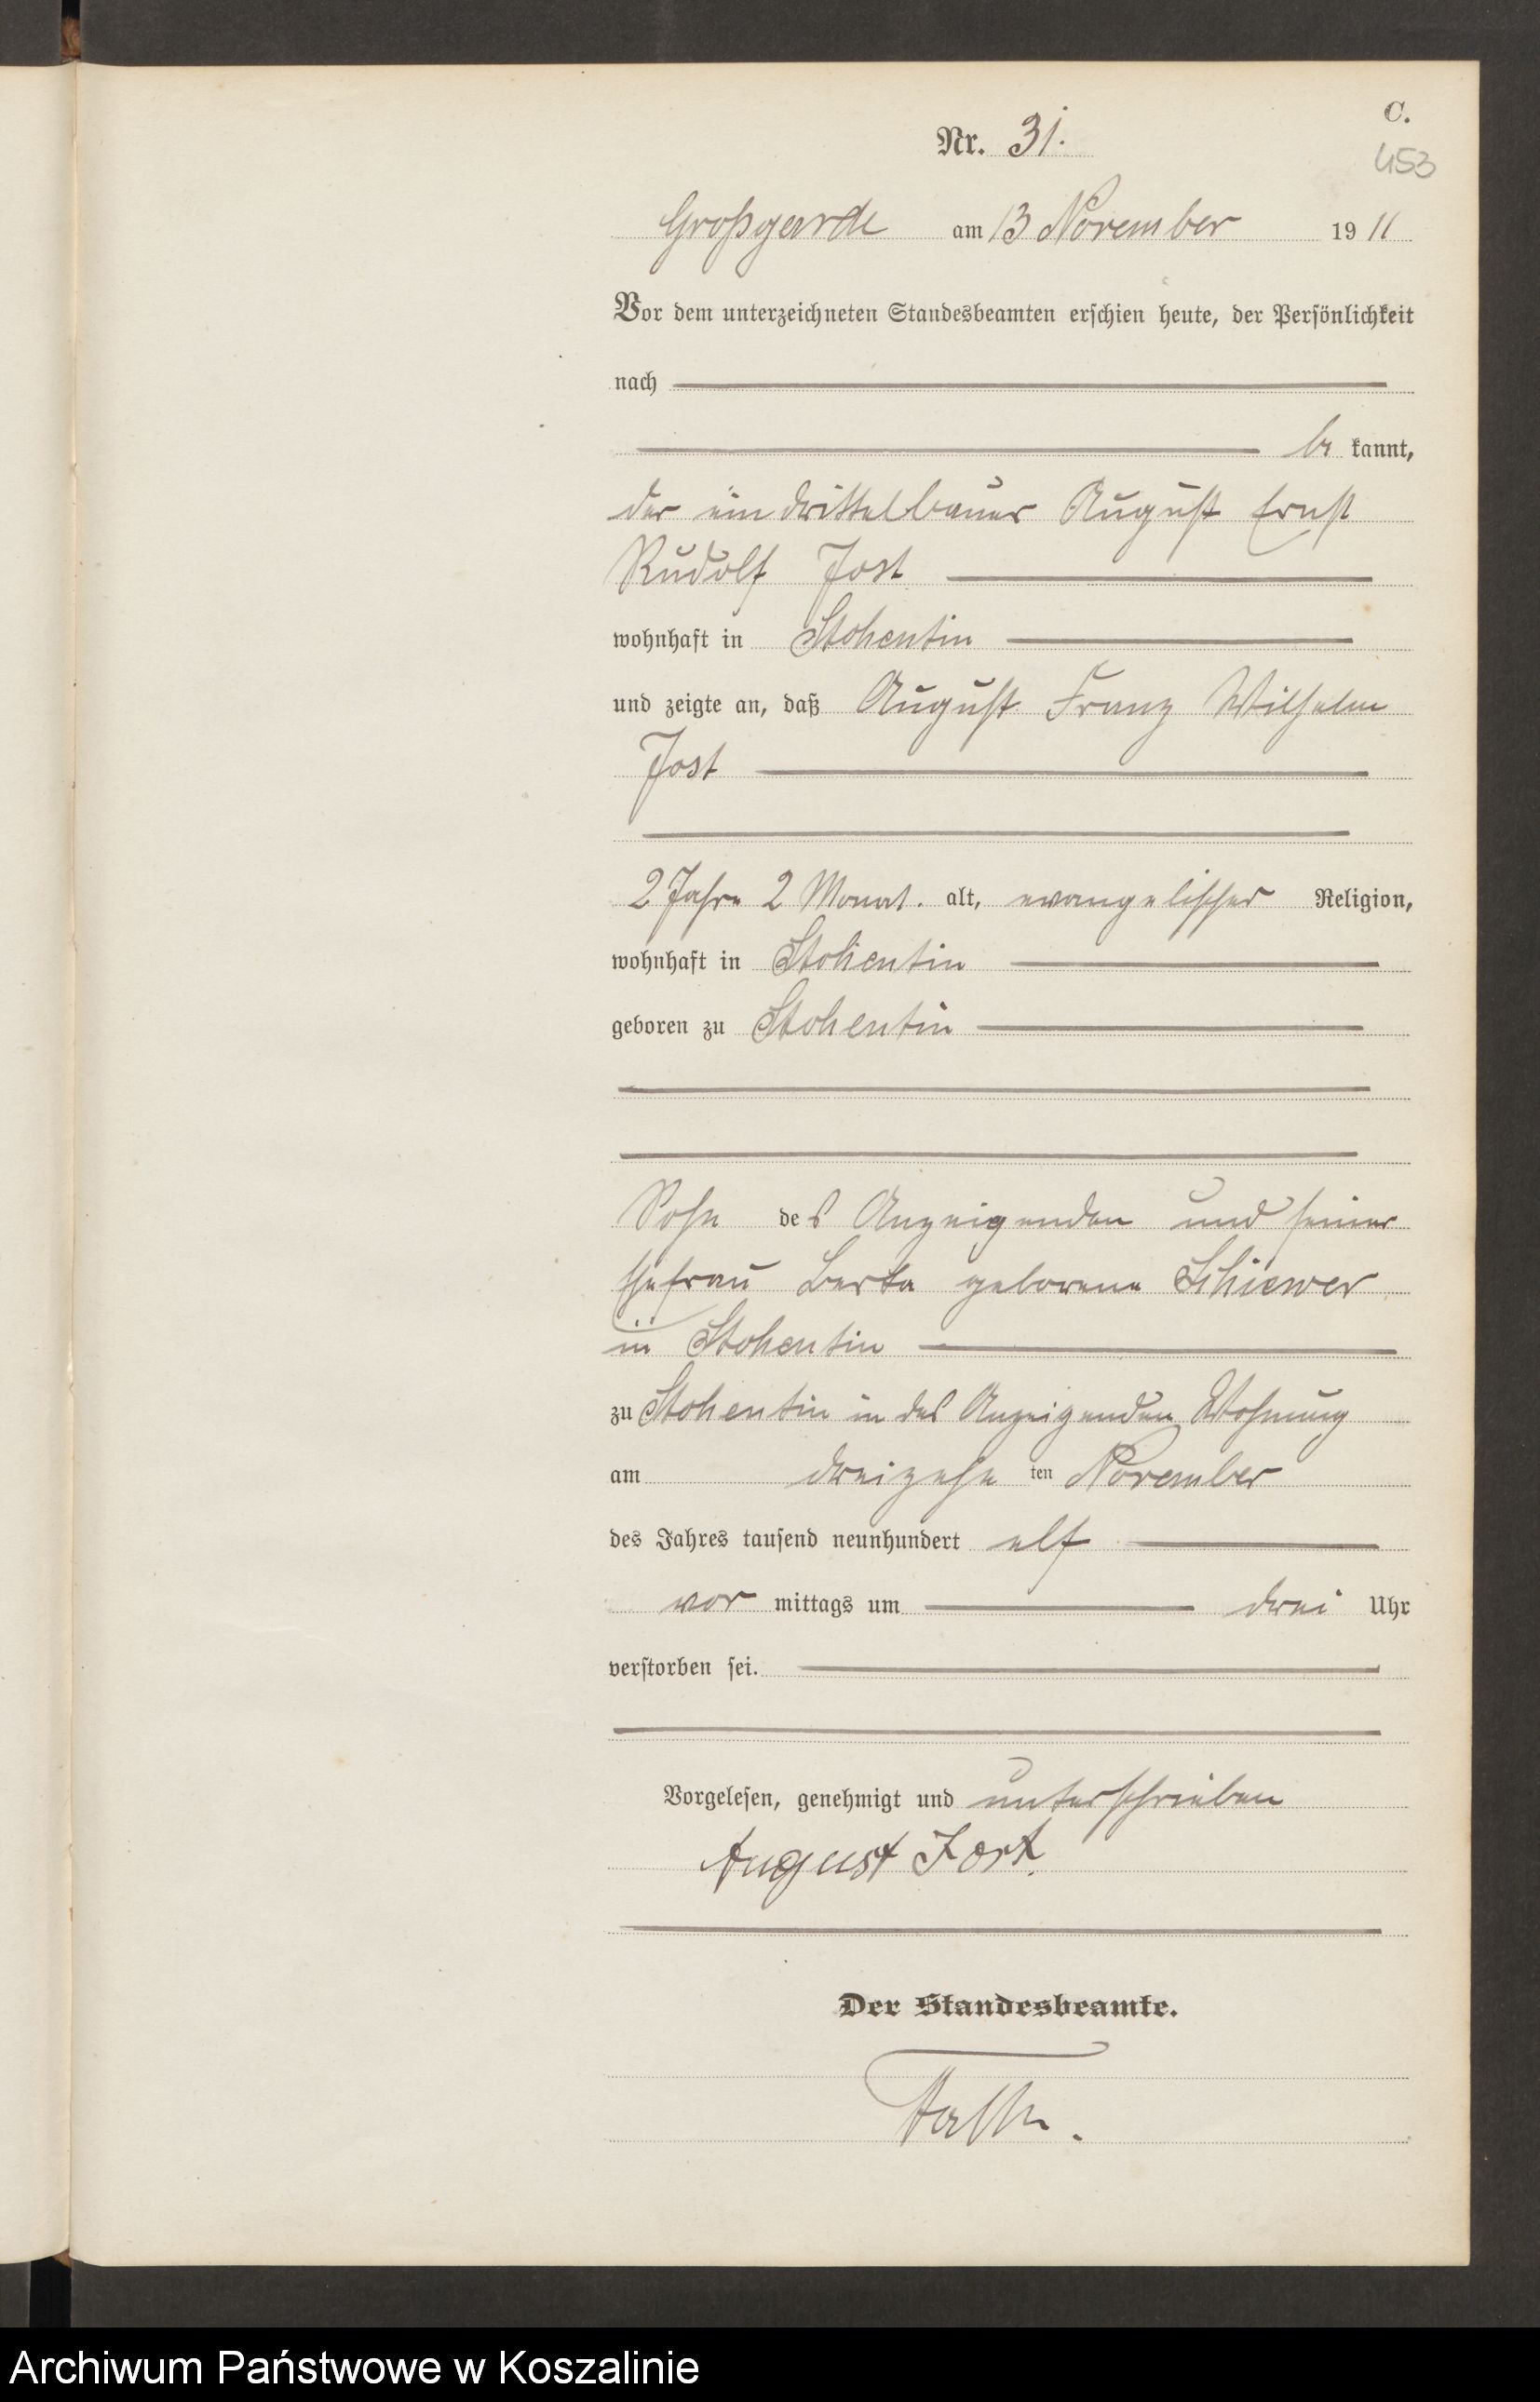 C.
Nr. 31.
453
Großgarde am 13 November 1911
Vor dem unterzeichneten Standesbeamten erschien heute, der Persönlichkeit
nach
be kannt,
der eindrittelbauer August Ernst
Rudolf Jost
wohnhaft in Stohentin
und zeigte an, daß August Franz Wilhelm
Jost
2 Jahre 2 Monat. alt, evangelischer Religion,
wohnhaft in Stohentin
geboren zu Stohentin
Sohn des Anzeigenden und seiner
Ehefrau Berta geborene Schiewer
in Stohentin
zu Stohentin in des Anzeigenden Wohnung
am dreizehn ten November
des Jahres tausend neunhundert elf
vor mittags um drei Uhr
verstorben sei.
Vorgelesen, genehmigt und unterschrieben
August Jost.
Der Standesbeamte.
Archiwum Państwowe w Koszalinie